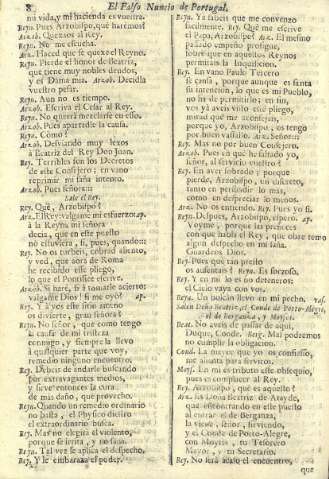 8 El Falso Nuncio de Portugal.
mi vida, y mi hacienda es vuestra.
Reyn. Pues Arzobispo, què haremos?
Arzob. Quexaos al Rey.
Reyn. No me escucha.
Arz. Haced que se quexe el Reyno.
Reyn. Pierde el honor de Beatriz,
que tiene muy nobles deudos,
y es Dama mia. Arzob. Decidla
vuestro pesar.
Reyn. Aun no es tiempo.
Arzob. Escriva el Cesar al Rey.
Reyn. No querrà mezclarse en esso.
Arzob. Pues apartadle la causa.
Reyn. Cómo?
Arzob. Desviando muy lexos
à Beatriz del Rey Don Juan.
Reyn. Terribles son los Decretos
de este Consejero; en vano
reprimir mi saña intento.
Arzob. Pues señora:
Sale el Rey.
Rey. Què, Arzobispo?
Arz. El Rey: valgame mi esfuerzo: ap.
à la Reyna mi señora
decia, que en este puesto
no estuviera, si, pues, quando:
Rey. No os turbeis, cobrad aliento,
y ved, que aora de Roma
he recibido este pliego,
lo que el Pontifice escrive.
Arzob. Si harè,
valgame Dios! si me oyò? ap.
Rey. Y à vos este sitio ameno
os divierte, gran señora?
Reyn. No señor, que como tengo
la causa de mi tristeza
conmigo, y siempre la llevo
à qualquier parte que voy,
remedio ninguno encuentro.
Rey. Debeis de andarle buscando
por extravagantes medios,
y sirve entonces la cura
de mas daño, que provecho.
Reyn. Quando un remedio ordinario
no basta, el Physico diestro
el extraordinario busca.
Rey. Mas no elegirà el violento,
porque se irrita, y no sana.
Reyn. Tal vez le aplica el despecho.
Rey. Y le embaraza el poder.
Reyn. Ya sabeis que me convenzo
facilmente. Rey. Què me escrive
el Papa, Arzobispo? Arz. El mesmo
passado empeño prosigue,
sobre que en aquestos Reynos
permitais la Inquisicion.
Rey. En vano Paulo Tercero
se cansa, porque aunque es santa
su intencion, lo que es mi Pueblo,
no ha de permitirlo; en fin,
ved ya à veis visto esse pliego,
mirad què me aconsejais,
porque yo, Arzobispo, os tengo
por buen vassallo. Arz. Señor:
Rey. Mas no por buen Consejero.
Arzob. Pues en què he faltado yo,
señor, al servicio vuestro?
Rey. En aver ignorado; porque
pierde, Arzobispo, un discreto,
tanto en persuadir lo mas,
como en despreciar lo menos.
Arzob. No os entiendo. Rey. Pues yo si.
Reyn. Despues, Arzobispo, espero. ap.
Voyme, porque la prenecs
con que habla el Rey, que obre temo
algun despecho en mi saña.
Guardeos Dios.
Rey. Pues què tan presto
os ausentais? Reyn. Es forzoso.
Rey. Y en mi lo es no deteneros:
el Cielo vaya con vos.
Reyn. Un bolcàn llevo en mi pecho. vase.
Salen Doña Beatriz, el Conde de Porto-Alegre,
el de Berganza, y Moysès.
Beat. No aveis de passar de aqui,
Duque, Conde. Berg. Mal podremos
no cumplir la obligacion.
Cond. La mayor, que yo os confiesso,
me alienta para serviros.
Moys. En mi es tributo este obsequio,
pues es complacer al Rey.
Rey. Arzobispo, què es aquello?
Arz. Es Doña Beatriz de Atayde,
que encontrando en este puesto
al entrar el de Berganza,
la viene, señor, sirviendo,
y el Conde de Porto-Alegre,
con Moysès, su Tesorero
Mayor, y su Secretario.
Rey. No serà acaso el encuentro,
que